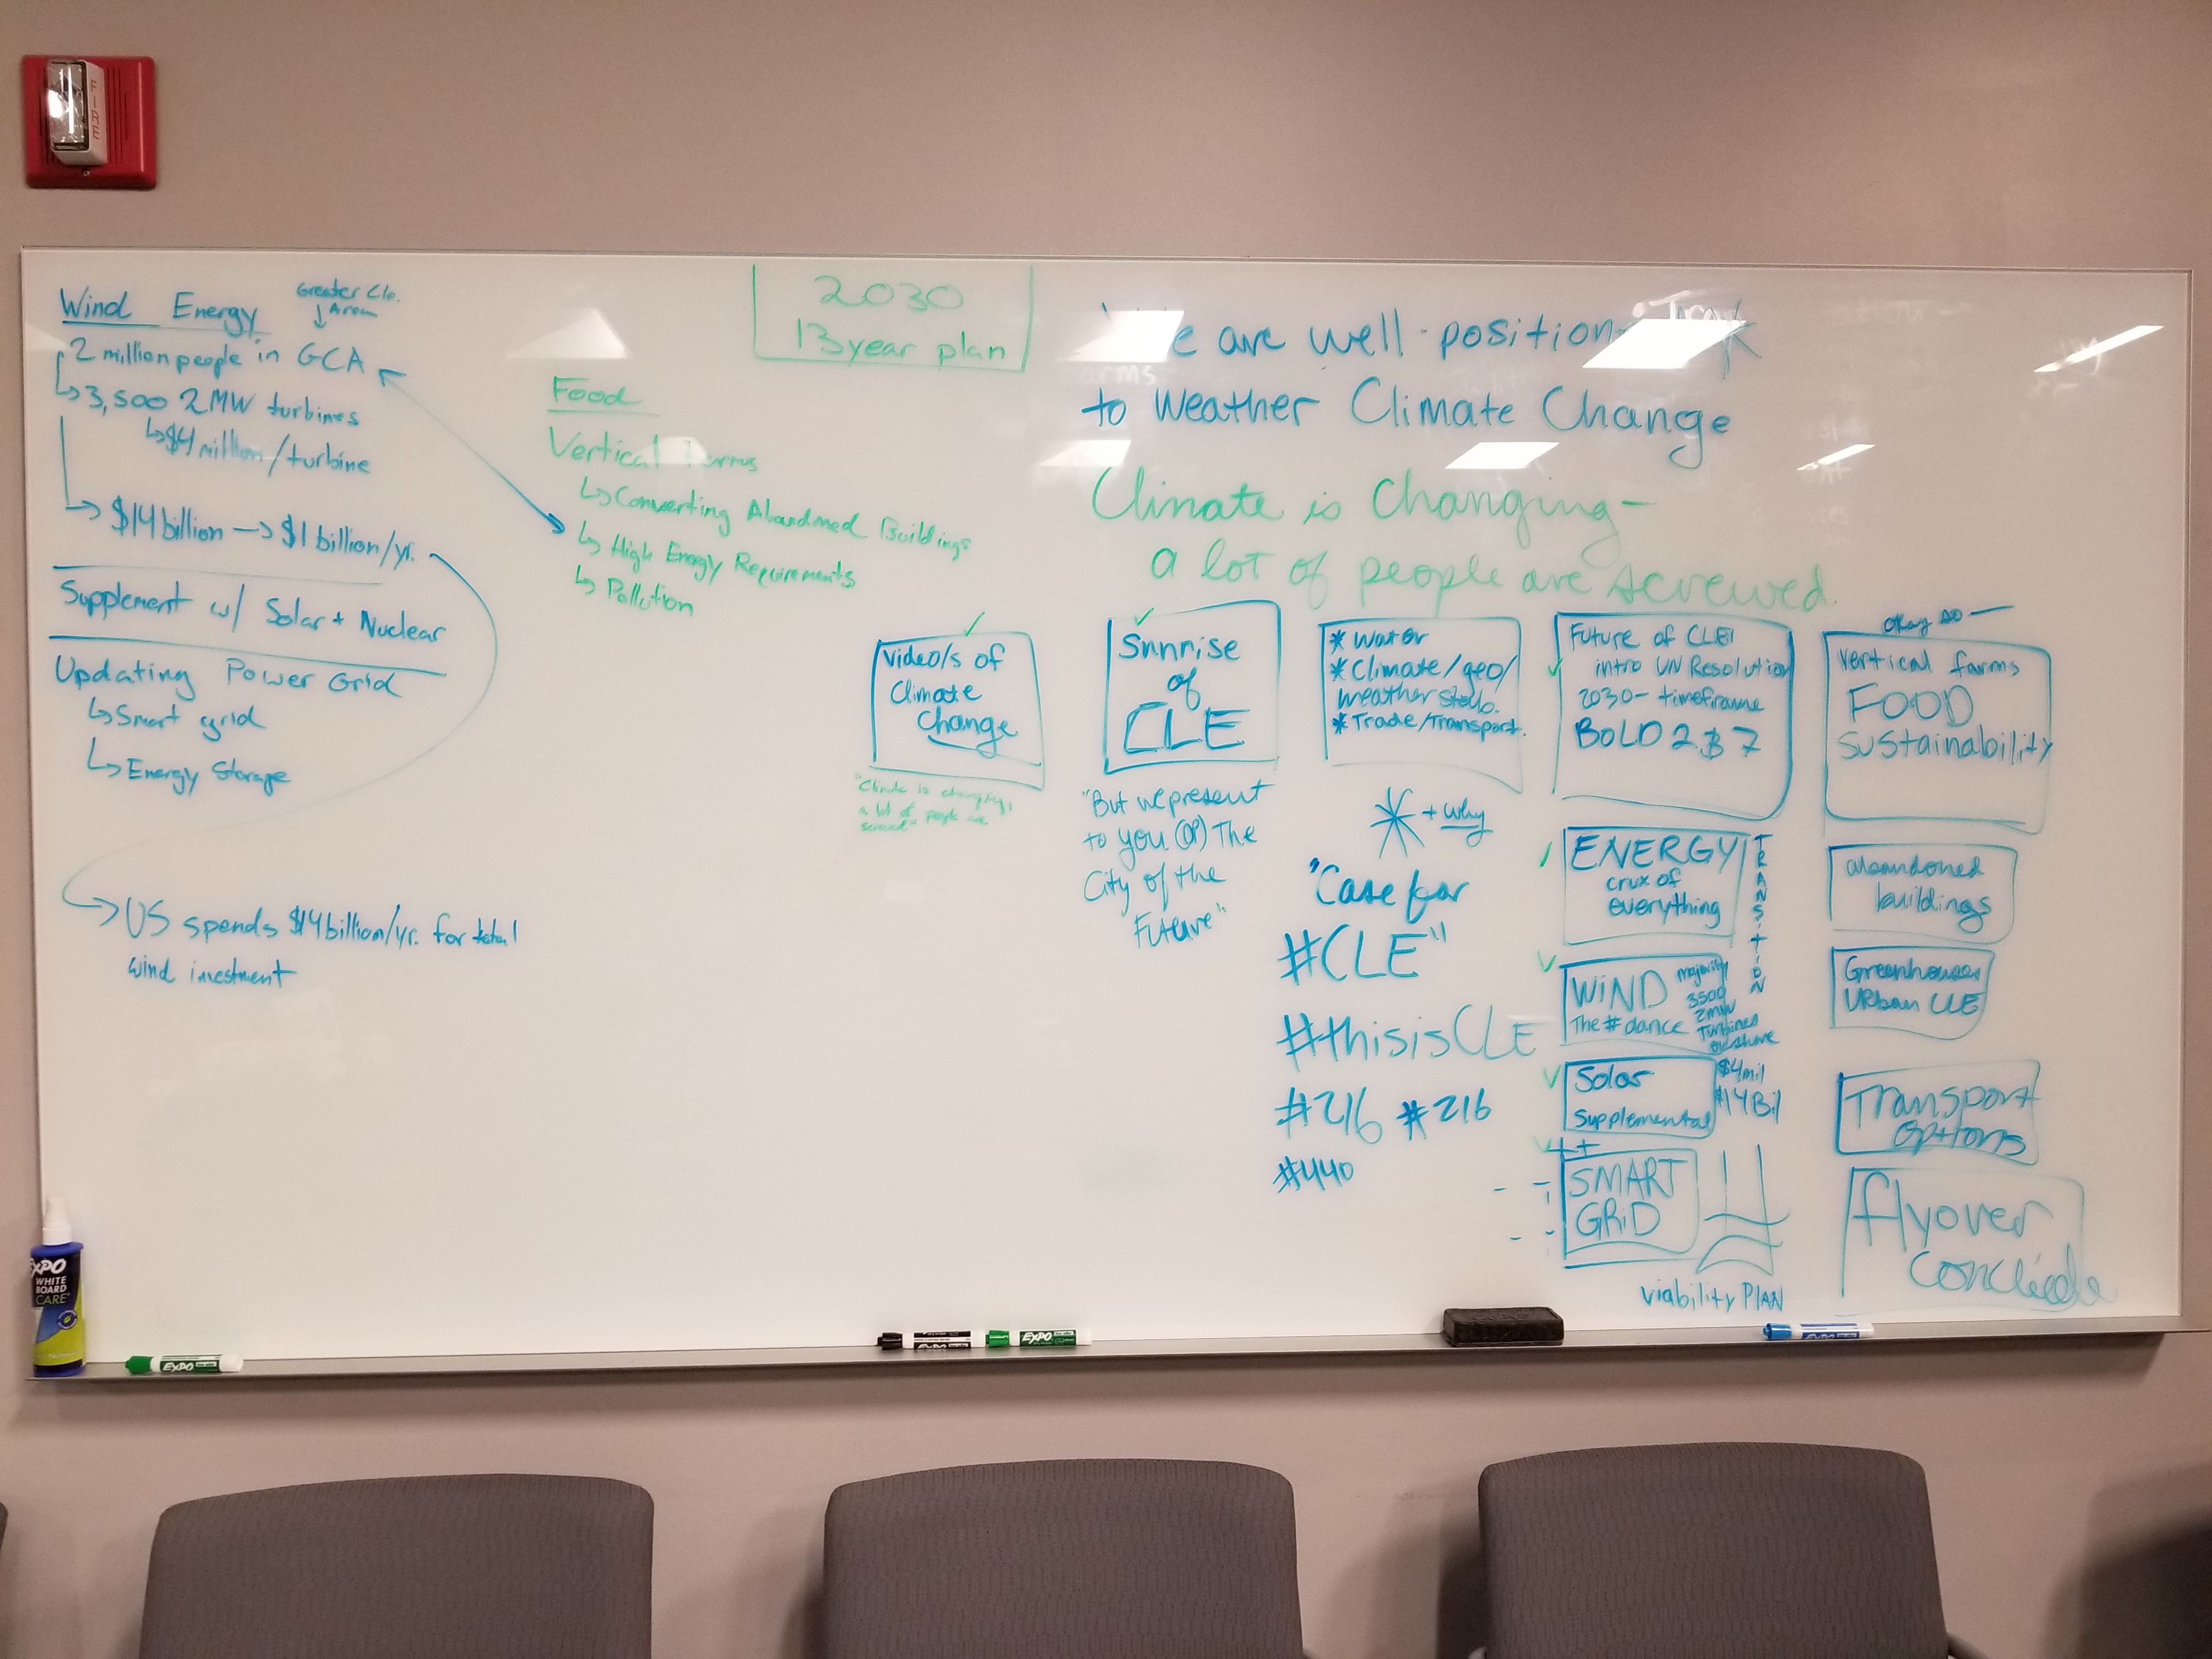 FIRE
Wind Energy
Greater Cle.
Area
2 million people in GCA
3,500 2MW turbines
$4 million/turbine
$14 billion → $1 billion/yr.
Supplement w/ Solar + Nuclear
Updating Power Grid
Smart grid
Energy Storage
US spends $14 billion/yr. for total
wind investment
2030
13 year plan
Food
Vertical Farms
Converting Abandoned Buildings
High Energy Requirements
Pollution
We are well-position
to Weather Climate Change
Climate is Changing-
a lot of people are screwed.
Video/s of
Climate
Change
"Climate is changing,
a lot of people are
screwed"
Sunrise
of
CLE
"But we present
to you (OP) The
City of the
Future"
* Water
* Climate/geo/
weather stab.
* Trade/Transport.
* + why
"Case for
#CLE"
#thisisCLE
#216 #216
#440
Future of CLE
intro UN Resolution
2030- timeframe
BOLD
ENERGY
crux of
everything
TRANSITION
WIND
The # dance
majority
3500
2MW
Turbines
Solar
Supplemental
$4mil
$14Bil
++
SMART
GRID
viability PLAN
okay so —
vertical farms
FOOD
Sustainability
abandoned
buildings
Greenhouses
Urban CLE
Transport
options
flyover
conclude
EXPO
WHITE
BOARD
CARE
EXPO
EXPO
EXPO